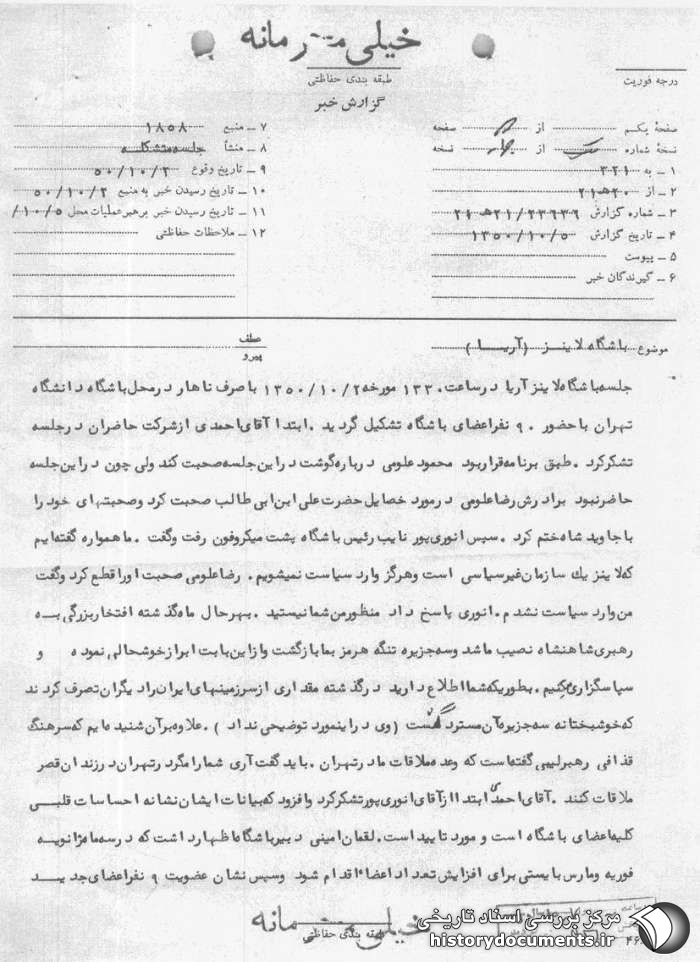 خیلی محرمانه
طبقه بندی حفاظتی
گزارش خبر
درجه فوریت
صفحهٔ یکم از صفحه
نسخهٔ شماره از نسخه
۱ ـ به ۳۲۱
۲ ـ از ۲۰ هـ ۲۱
۳ ـ شماره گزارش ۲۳۶۳۶/۲۱ هـ ۲۱
۴ ـ تاریخ گزارش ۱۳۵۰/۱۰/۵
۵ ـ پیوست
۶ ـ گیرندگان خبر
۷ ـ منبع ۱۸۵۸
۸ ـ منشأ جلسه متشکله
۹ ـ تاریخ وقوع ۵۰/۱۰/۲
۱۰ ـ تاریخ رسیدن خبر به منبع ۵۰/۱۰/۲
۱۱ ـ تاریخ رسیدن خبر برهبر عملیات محل ۱۰/۵/
۱۲ ـ ملاحظات حفاظتی
موضوع باشگاه لاینز (آریا)
عطف
پیرو
جلسه باشگاه لاینز آریا در ساعت ۱۳۳۰ مورخه ۱۳۵۰/۱۰/۲ با صرف ناهار در محل باشگاه دانشگاه
تهران با حضور ۹۰ نفر اعضای باشگاه تشکیل گردید . ابتدا آقای احمدی از شرکت حاضران در جلسه
تشکر کرد . طبق برنامه قرار بود محمود علومی درباره گوشت در این جلسه صحبت کند ولی چون در این جلسه
حاضر نبود برادرش رضا علومی در مورد خصایل حضرت علی ابن ابی طالب صحبت کرد و صحبتهای خود را
با جاوید شاه ختم کرد . سپس انوری پور نایب رئیس باشگاه پشت میکروفون رفت و گفت . ما همواره گفته ایم
که لاینز یك سازمان غیر سیاسی است و هرگز وارد سیاست نمیشویم . رضا علومی صحبت او را قطع کرد و گفت
من وارد سیاست نشدم . انوری پاسخ داد منظور من شما نیستید . بهر حال ماه گذشته افتخار بزرگی به
رهبری شاهنشاه نصیب ما شد و سه جزیره تنگه هرمز بما بازگشت و از این بابت ابراز خوشحالی نموده و
سپاسگزاری میکنیم . بطوریکه شما اطلاع دارید در گذشته مقداری از سرزمینهای ایران را دیگران تصرف کردند
که خوشبختانه سه جزیره آن مسترد گشت (وی در اینمورد توضیحی نداد) . علاوه بر آن شنیده ایم که سرهنگ
قذافی رهبر لیبی گفته است که وعده ملاقات ما در تهران . باید گفت آری شما را مگر در تهران در زندان قصر
ملاقات کنند . آقای احمدی ابتدا از آقای انوری پور تشکر کرد و افزود که بیانات ایشان نشانه احساسات قلبی
کلیه اعضای باشگاه است و مورد تایید است . لقمان امینی دبیر باشگاه اظهار داشت که در سه ماه ژانویه
فوریه و مارس بایستی برای افزایش تعداد اعضاء اقدام شود و سپس نشان عضویت ۹ نفر اعضای جدید
خیلی محرمانه
طبقه بندی حفاظتی
مرکز بررسی اسناد تاریخی
historydocuments.ir